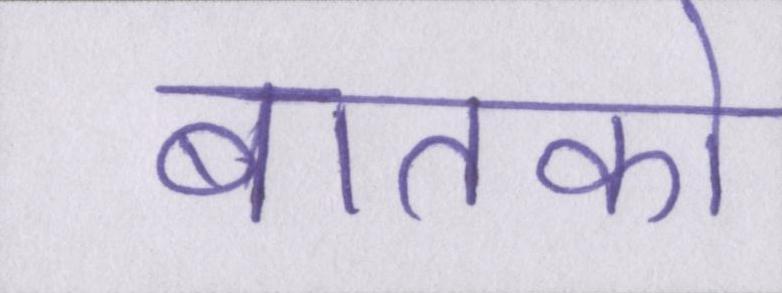 बातको